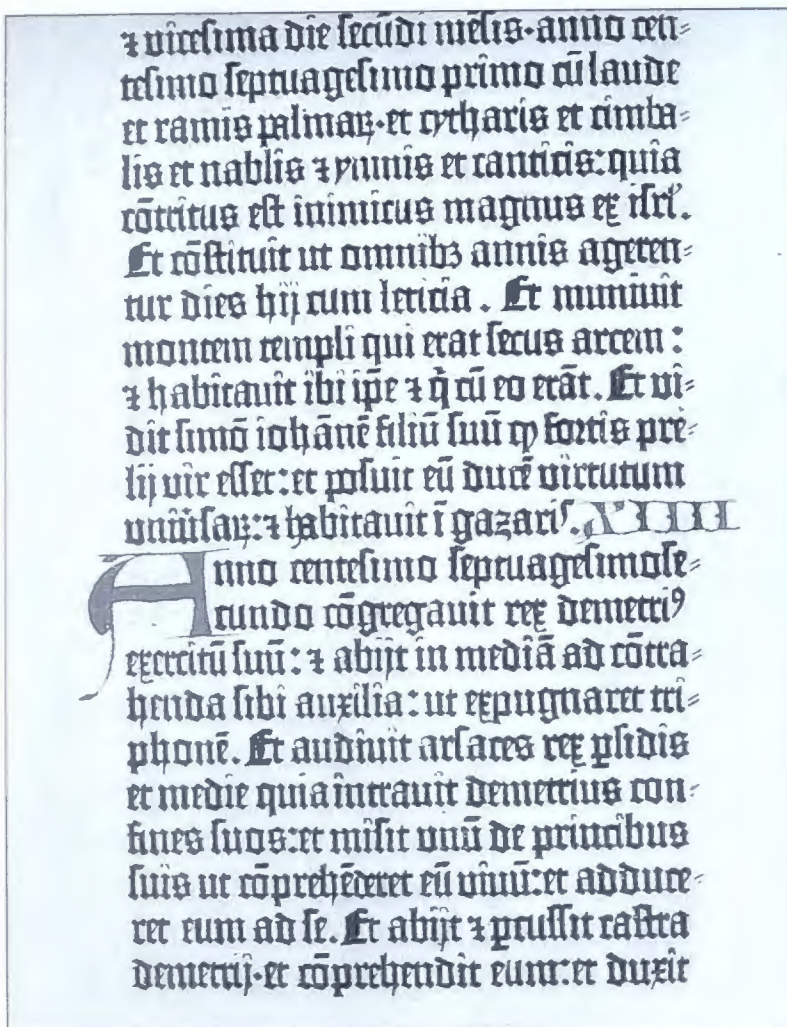 ⁊ vicesima die secūdi mēsis·anno cen-
tesimo septuagesimo primo cū laude
et ramis palmaꝝ·et cytharis et cimba-
lis et nablis ⁊ ymnis et canticis:quia
cōtritus est inimicus magnus ex isrl̕.
Et cōstituit ut omnibꝫ annis ageren-
tur dies hij cum leticia. Et muniuit
montem templi qui erat secus arcem:
⁊ habitauit ibi ip̄e ⁊ q̇ cū eo erāt. Et vi-
dit simō iohānē filiū suū ꝙ fortis pre-
lij vir esset:et posuit eū ducē virtutum
vniūsaꝝ:⁊ habitauit ī gazaris. XIIII
Anno centesimo septuagesimose-
cundo cōgregauit rex demetriꝰ
exercitū suū: ⁊ abijt in mediā ad cōtra-
henda sibi auxilia: ut expugnaret tri-
phonē. Et audiuit arsaces rex ꝑsidis
et medie quia intrauit demetrius con-
fines suos:et misit vnū de principibus
suis ut cōprehēderet eū viuū:et adduce-
ret eum ad se. Et abijt ⁊ ꝑcussit castra
demetrij·et cōprehendit eum:et duxit